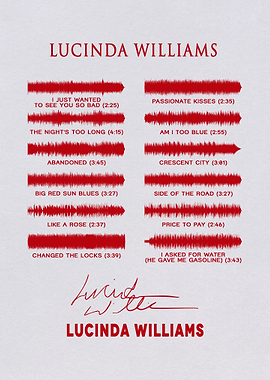 LUCINDA WILLIAMS
I JUST WANTED
TO SEE YOU SO BAD (2:25)
THE NIGHT'S TOO LONG (4:15)
ABANDONED (3:45)
BIG RED SUN BLUES (3:27)
LIKE A ROSE (2:37)
CHANGED THE LOCKS (3:39)
PASSIONATE KISSES (2:35)
AM I TOO BLUE (2:55)
CRESCENT CITY (3:01)
SIDE OF THE ROAD (3:27)
PRICE TO PAY (2:46)
I ASKED FOR WATER
(HE GAVE ME GASOLINE) (3:43)
Lucinda
Willi
LUCINDA WILLIAMS